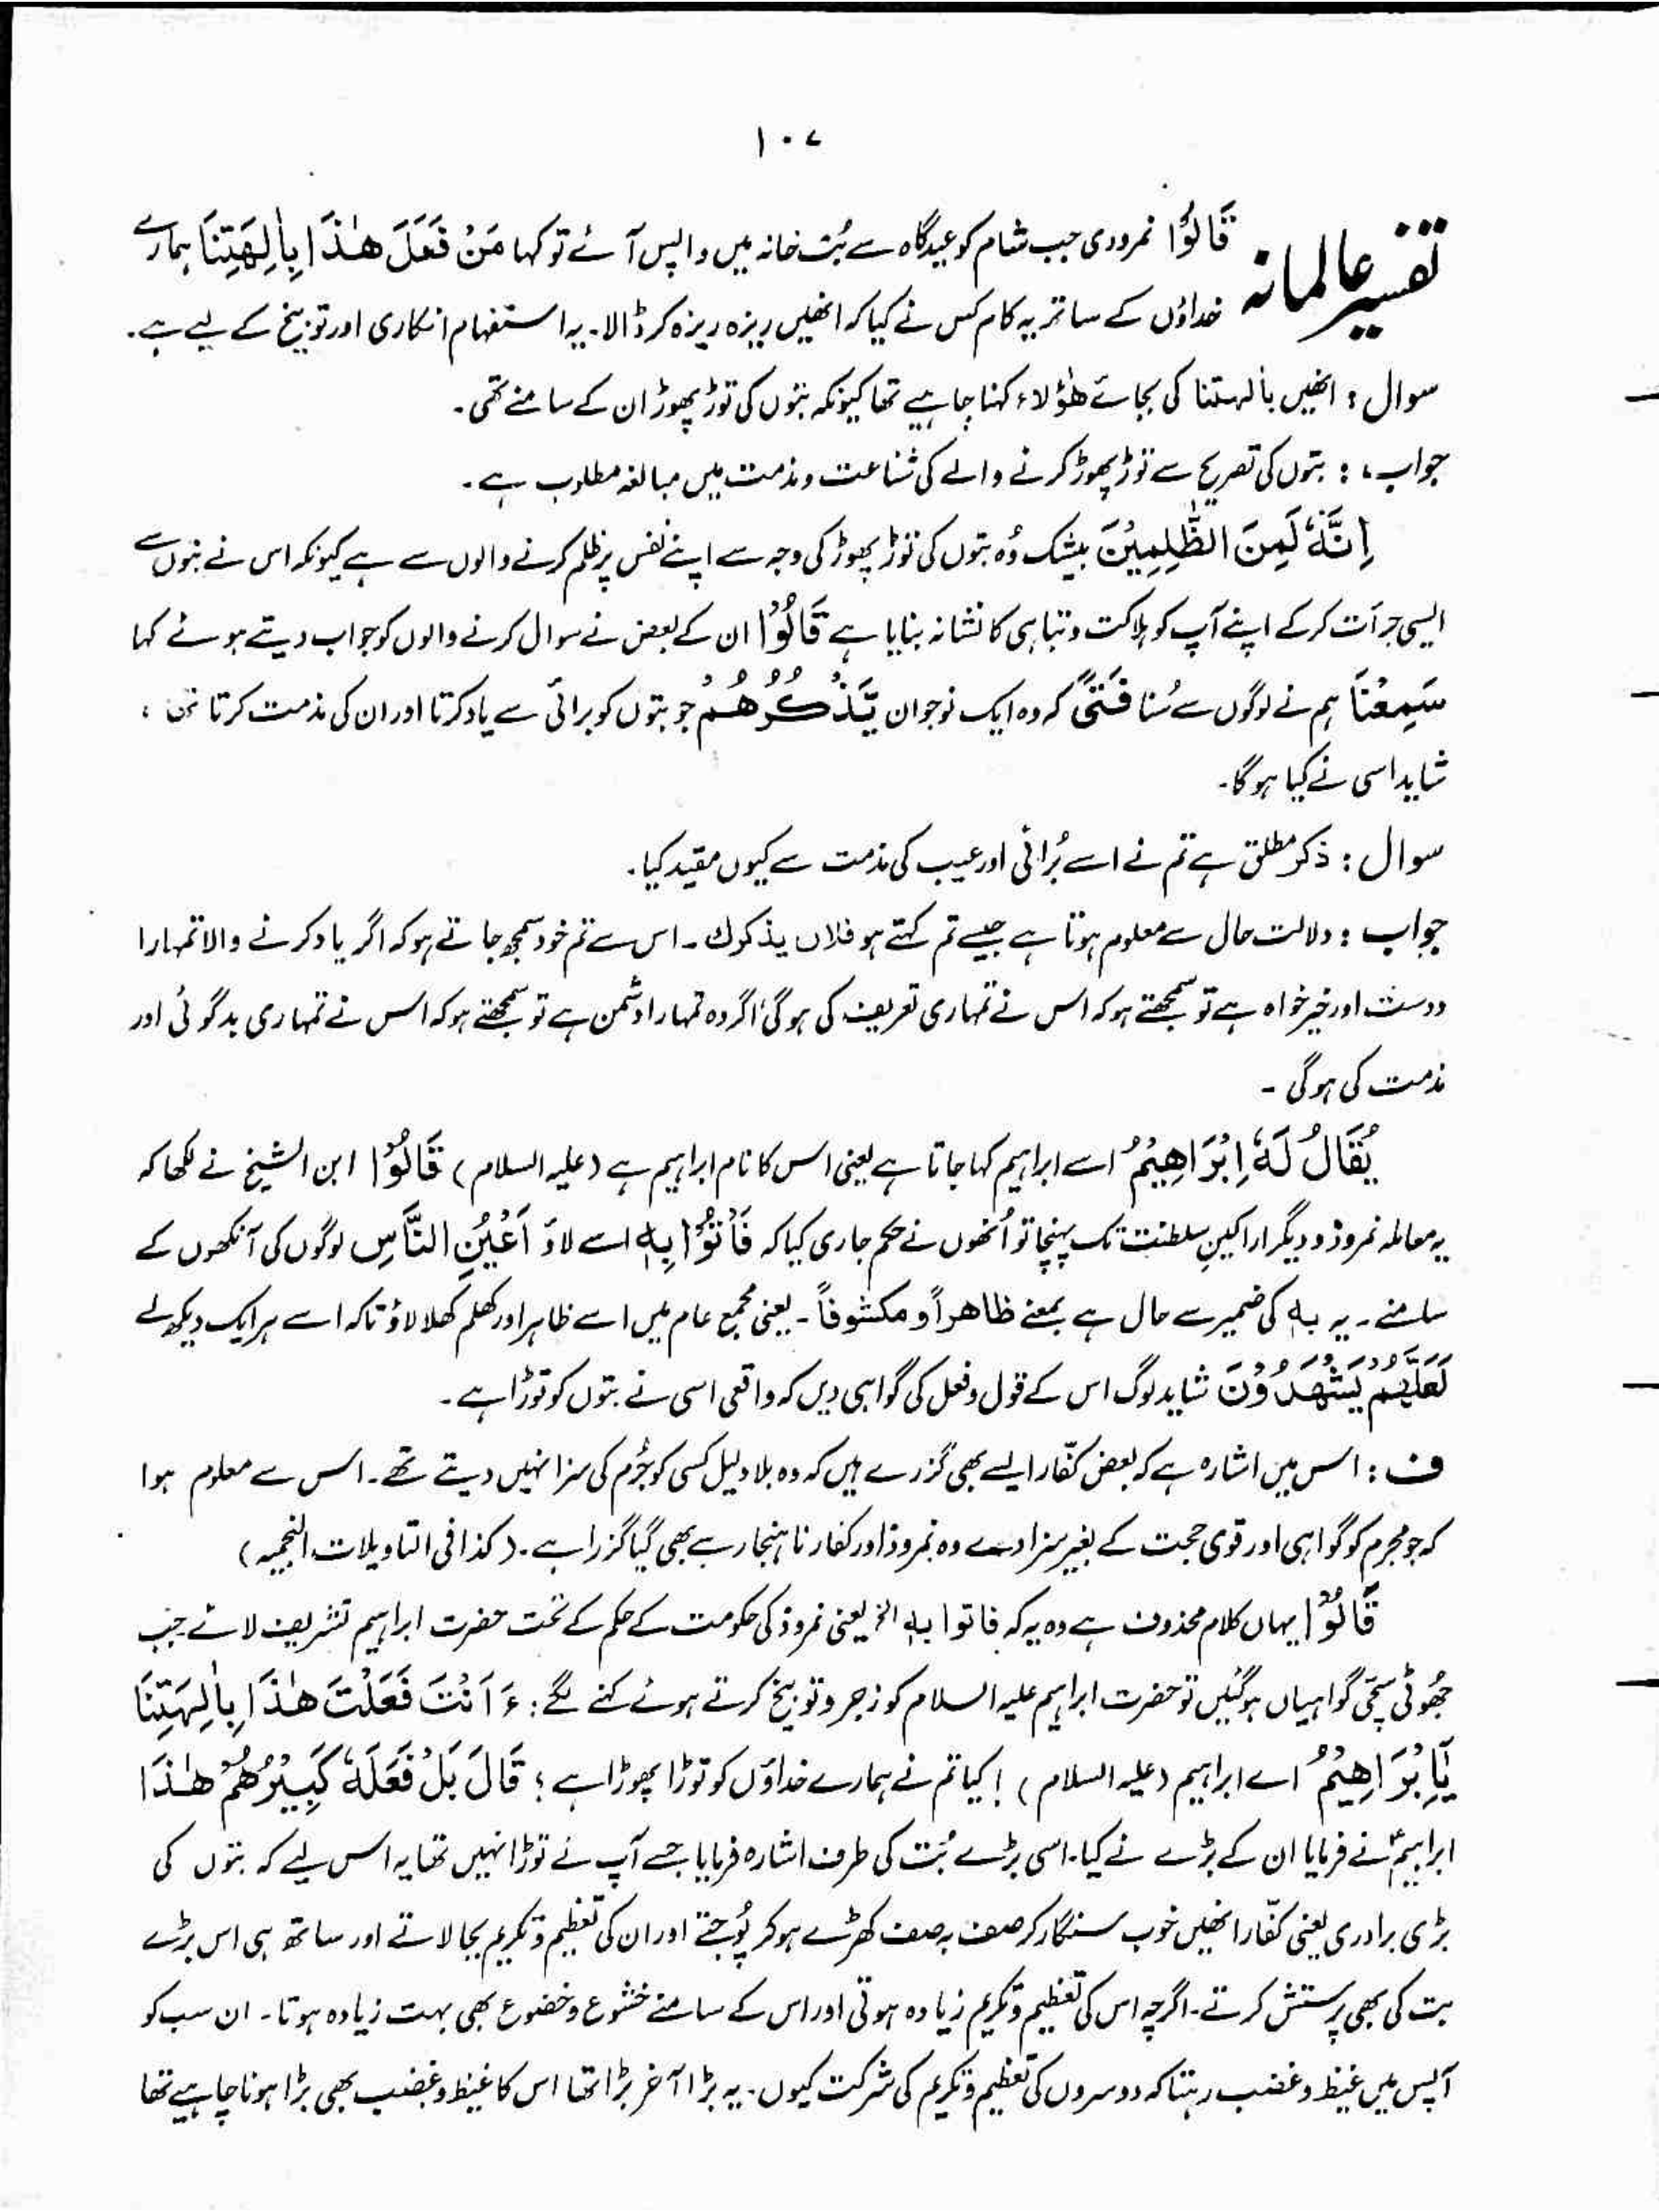 ۱۰۷
تفسیر عالمانہ
قَالُوْا نمرودی جب شام کو عیدگاہ سے بُت خانہ میں واپس آئے تو کہا مَنْ فَعَلَ هٰذَا بِاٰلِهَتِنَا ہمارے
خداؤں کے ساتھ یہ کام کس نے کیا کہ انھیں ریزہ ریزہ کر ڈالا۔ یہ استفہام انکاری اور توبیخ کے لیے ہے۔
سوال : انھیں بآلہتنا کی بجائے ھٰؤلاء کہنا چاہیے تھا کیونکہ بتوں کی توڑ پھوڑ ان کے سامنے تھی۔
جواب : بتوں کی تصریح سے توڑ پھوڑ کرنے والے کی شناعت و مذمت میں مبالغہ مطلوب ہے۔
اِنَّهٗ لَمِنَ الظّٰلِمِيْنَ بیشک وُہ بتوں کی توڑ پھوڑ کی وجہ سے اپنے نفس پر ظلم کرنے والوں سے ہے کیونکہ اس نے بتوں سے
ایسی جرأت کرکے اپنے آپ کو ہلاکت و تباہی کا نشانہ بنایا ہے قَالُوْا ان کے بعض نے سوال کرنے والوں کو جواب دیتے ہوئے کہا
سَمِعْنَا ہم نے لوگوں سے سُنا فَتًى کہ وہ ایک نوجوان يَّذْكُرُهُمْ جو بتوں کو برائی سے یاد کرتا اور ان کی مذمت کرتا تھا ،
شاید اسی نے کیا ہوگا۔
سوال : ذکر مطلق ہے تم نے اسے بُرائی اور عیب کی مذمت سے کیوں مقید کیا۔
جواب : دلالت حال سے معلوم ہوتا ہے جیسے تم کہتے ہو فلان یذکرك ۔ اس سے تم خود سمجھ جاتے ہو کہ اگر یاد کرنے والا تمہارا
دوست اور خیر خواہ ہے تو سمجھتے ہو کہ اس نے تمہاری تعریف کی ہوگی اگر وہ تمہارا دشمن ہے تو سمجھتے ہو کہ اس نے تمہاری بدگوئی اور
مذمت کی ہوگی ۔
يُقَالُ لَهٗ اِبْرَاهِيْمُ اسے ابراہیم کہا جاتا ہے یعنی اس کا نام ابراہیم ہے (علیہ السلام) قَالُوْا ابن الشیخ نے لکھا کہ
یہ معاملہ نمروذ و دیگر اراکینِ سلطنت تک پہنچا تو اُنھوں نے حکم جاری کیا کہ فَأْتُوْا بِهٖ اسے لاؤ اَعْيُنِ النَّاسِ لوگوں کی آنکھوں کے
سامنے ۔ یہ بہٖ کی ضمیر سے حال ہے بمعنے ظاھراً و مکشوفاً ۔ یعنی مجمع عام میں اسے ظاہر اور کھلم کھلا لاؤ تاکہ اسے ہر ایک دیکھ لے
لَعَلَّهُمْ يَشْهَدُوْنَ شاید لوگ اس کے قول و فعل کی گواہی دیں کہ واقعی اسی نے بتوں کو توڑا ہے ۔
ف : اس میں اشارہ ہے کہ بعض کفّار ایسے بھی گزرے ہیں کہ وہ بلا دلیل کسی کو جُرم کی سزا نہیں دیتے تھے۔ اس سے معلوم ہوا
کہ جو مجرم کو گواہی اور قوی حجت کے بغیر سزا دے وہ نمروذ اور کفار ناہنجار سے بھی گیا گزرا ہے ۔ (کذا فی التاویلات النجمیہ)
قَالُوْا یہاں کلام محذوف ہے وہ یہ کہ فاتوا بہٖ الخ یعنی نمروذ کی حکومت کے حکم کے تحت حضرت ابراہیم تشریف لائے جب
جُھوٹی سچّی گواہیاں ہوگئیں تو حضرت ابراہیم علیہ السلام کو زجر و توبیخ کرتے ہوئے کہنے لگے : ءَاَنْتَ فَعَلْتَ هٰذَا بِاٰلِهَتِنَا
يٰٓاِبْرَاهِيْمُ اے ابراہیم (علیہ السلام) ! کیا تم نے ہمارے خداؤں کو توڑا پھوڑا ہے ؛ قَالَ بَلْ فَعَلَهٗ كَبِيْرُهُمْ هٰذَا
ابراہیمؑ نے فرمایا ان کے بڑے نے کیا۔ اسی بڑے بُت کی طرف اشارہ فرمایا جسے آپ نے توڑا نہیں تھا یہ اس لیے کہ بتوں کی
بڑی برادری یعنی کفّار انھیں خوب سنگار کر صف بہ صف کھڑے ہوکر پُوجتے اور ان کی تعظیم و تکریم بجا لاتے اور ساتھ ہی اس بڑے
بت کی بھی پرستش کرتے ۔ اگرچہ اس کی تعظیم و تکریم زیادہ ہوتی اور اس کے سامنے خشوع و خضوع بھی بہت زیادہ ہوتا ۔ ان سب کو
آپس میں غیظ و غضب رہتا کہ دوسروں کی تعظیم و تکریم کی شرکت کیوں ۔ یہ بڑا آخر بڑا تھا اس کا غیظ و غضب بھی بڑا ہونا چاہیے تھا